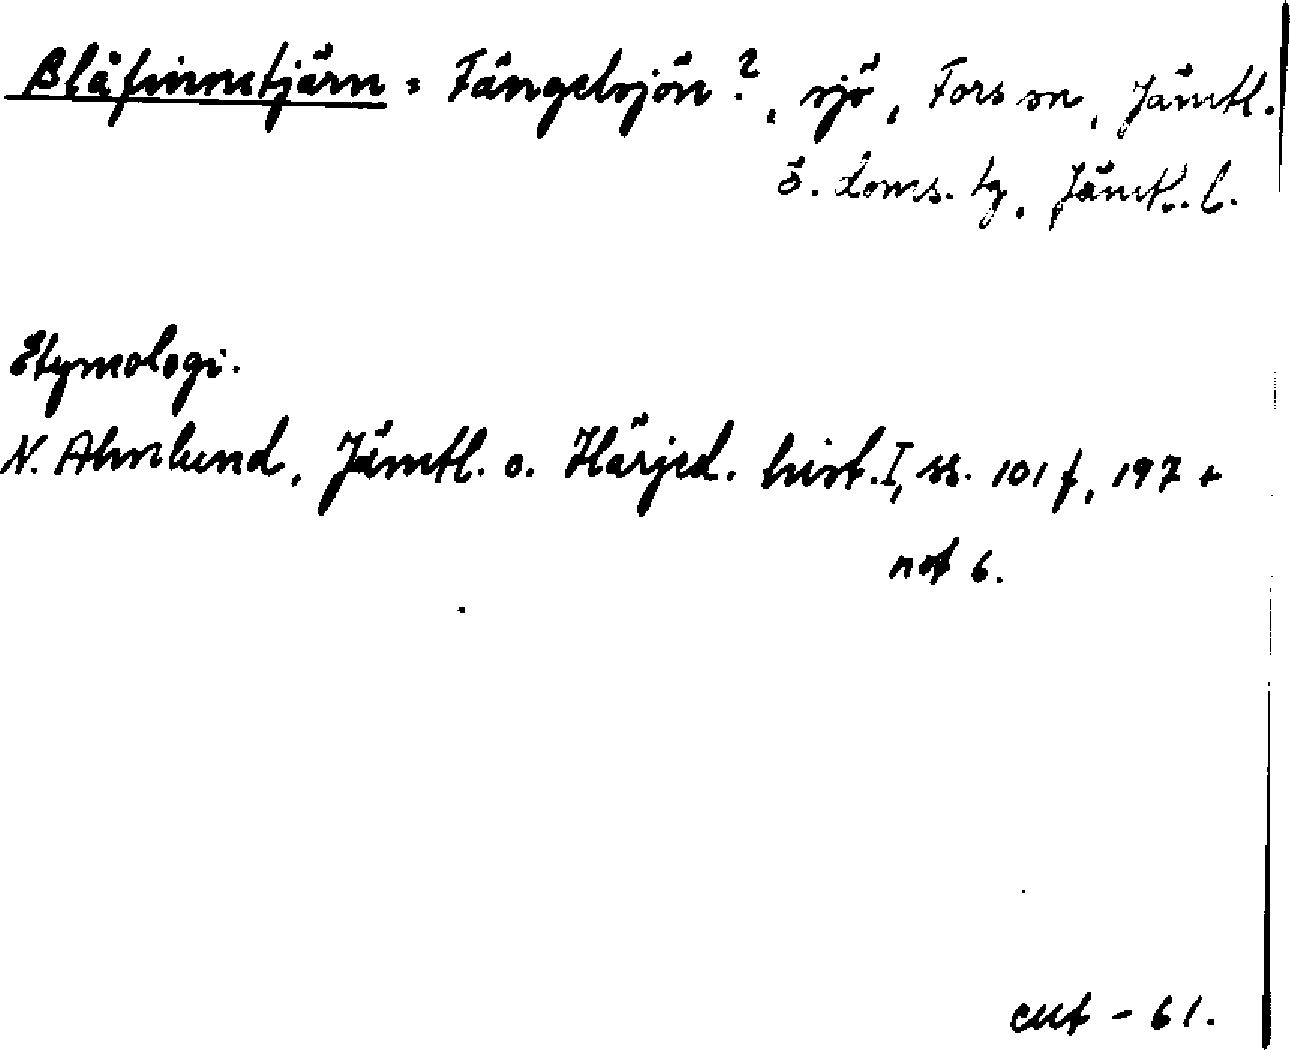 Blåfinnetjärn = Fängelsjön ?, sjö, Fors sn, Jämtl.
ö. doms. tg, Jämtl. l.
Etymologi.
N. Ahnlund, Jämtl. o. Härjed. hist. I, ss. 101 f, 197 +
not 6.
cut - 61.